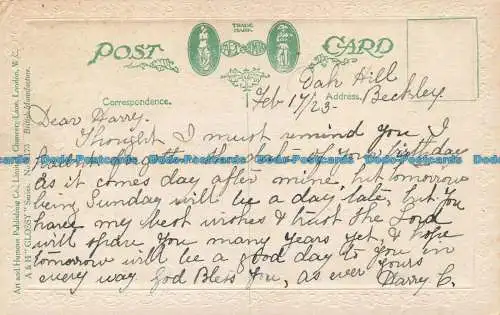 TRADE
MARK.
POST CARD
Correspondence.
Address.
Art and Humour Publishing Co., Limited, Chancery Lane, London, W.C.
A & H "GLOSSY" Series.
British Manufacture.
Oak Hill
Beckley
Feb 17/23
Dear Harry.
Thought I must remind you I
hadn't forgotten the date of your birthday
as it comes day after mine, but tomorrow
being Sunday will be a day late, but you
have my best wishes & trust the Lord
will spare you many years yet, & hope
tomorrow will be a good day to you in
every way God Bless You, as ever yours
Harry C.